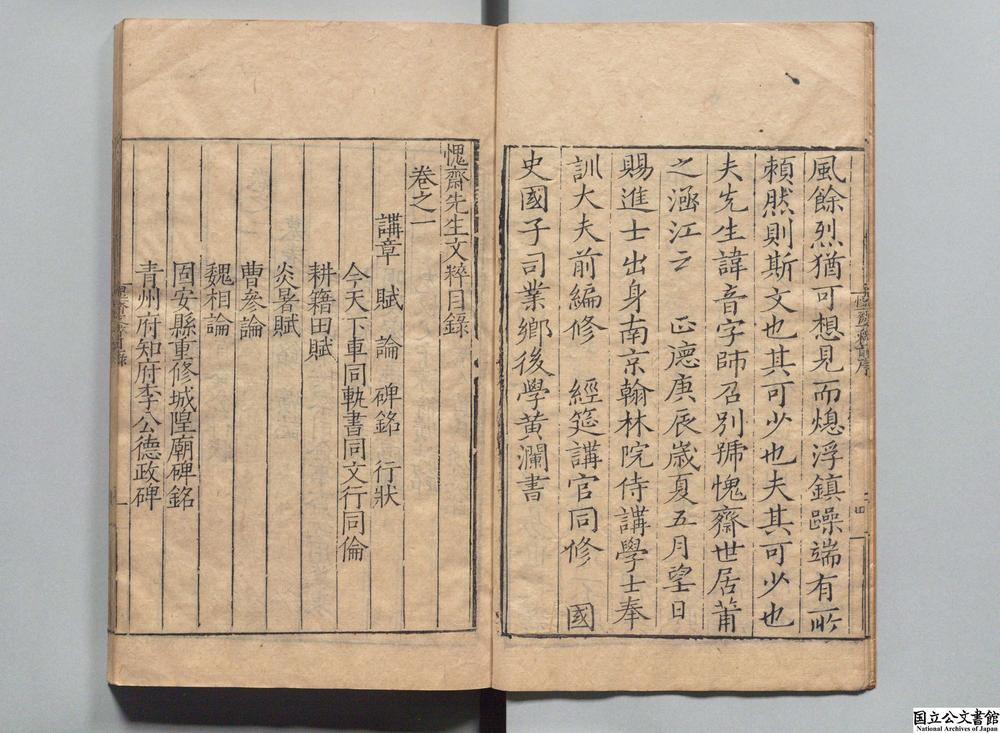 風餘烈猶可想見而熄浮鎮躁端有所
頼然則斯文也其可少也夫其可少也
夫先生諱音字師召別號愧齋世居莆
之涵江云　正德庚辰歲夏五月望日
賜進士出身南京翰林院侍講學士奉
訓大夫前編修　經筵講官同修　國
史國子司業鄉後學黄瀾書
愧齋先生文粹目錄
卷之一
講章　賦　論　碑銘　行狀
今天下車同軌書同文行同倫
耕籍田賦
炎暑賦
曹參論
魏相論
固安縣重修城隍廟碑銘
青州府知府李公德政碑
一
国立公文書館
National Archives of Japan